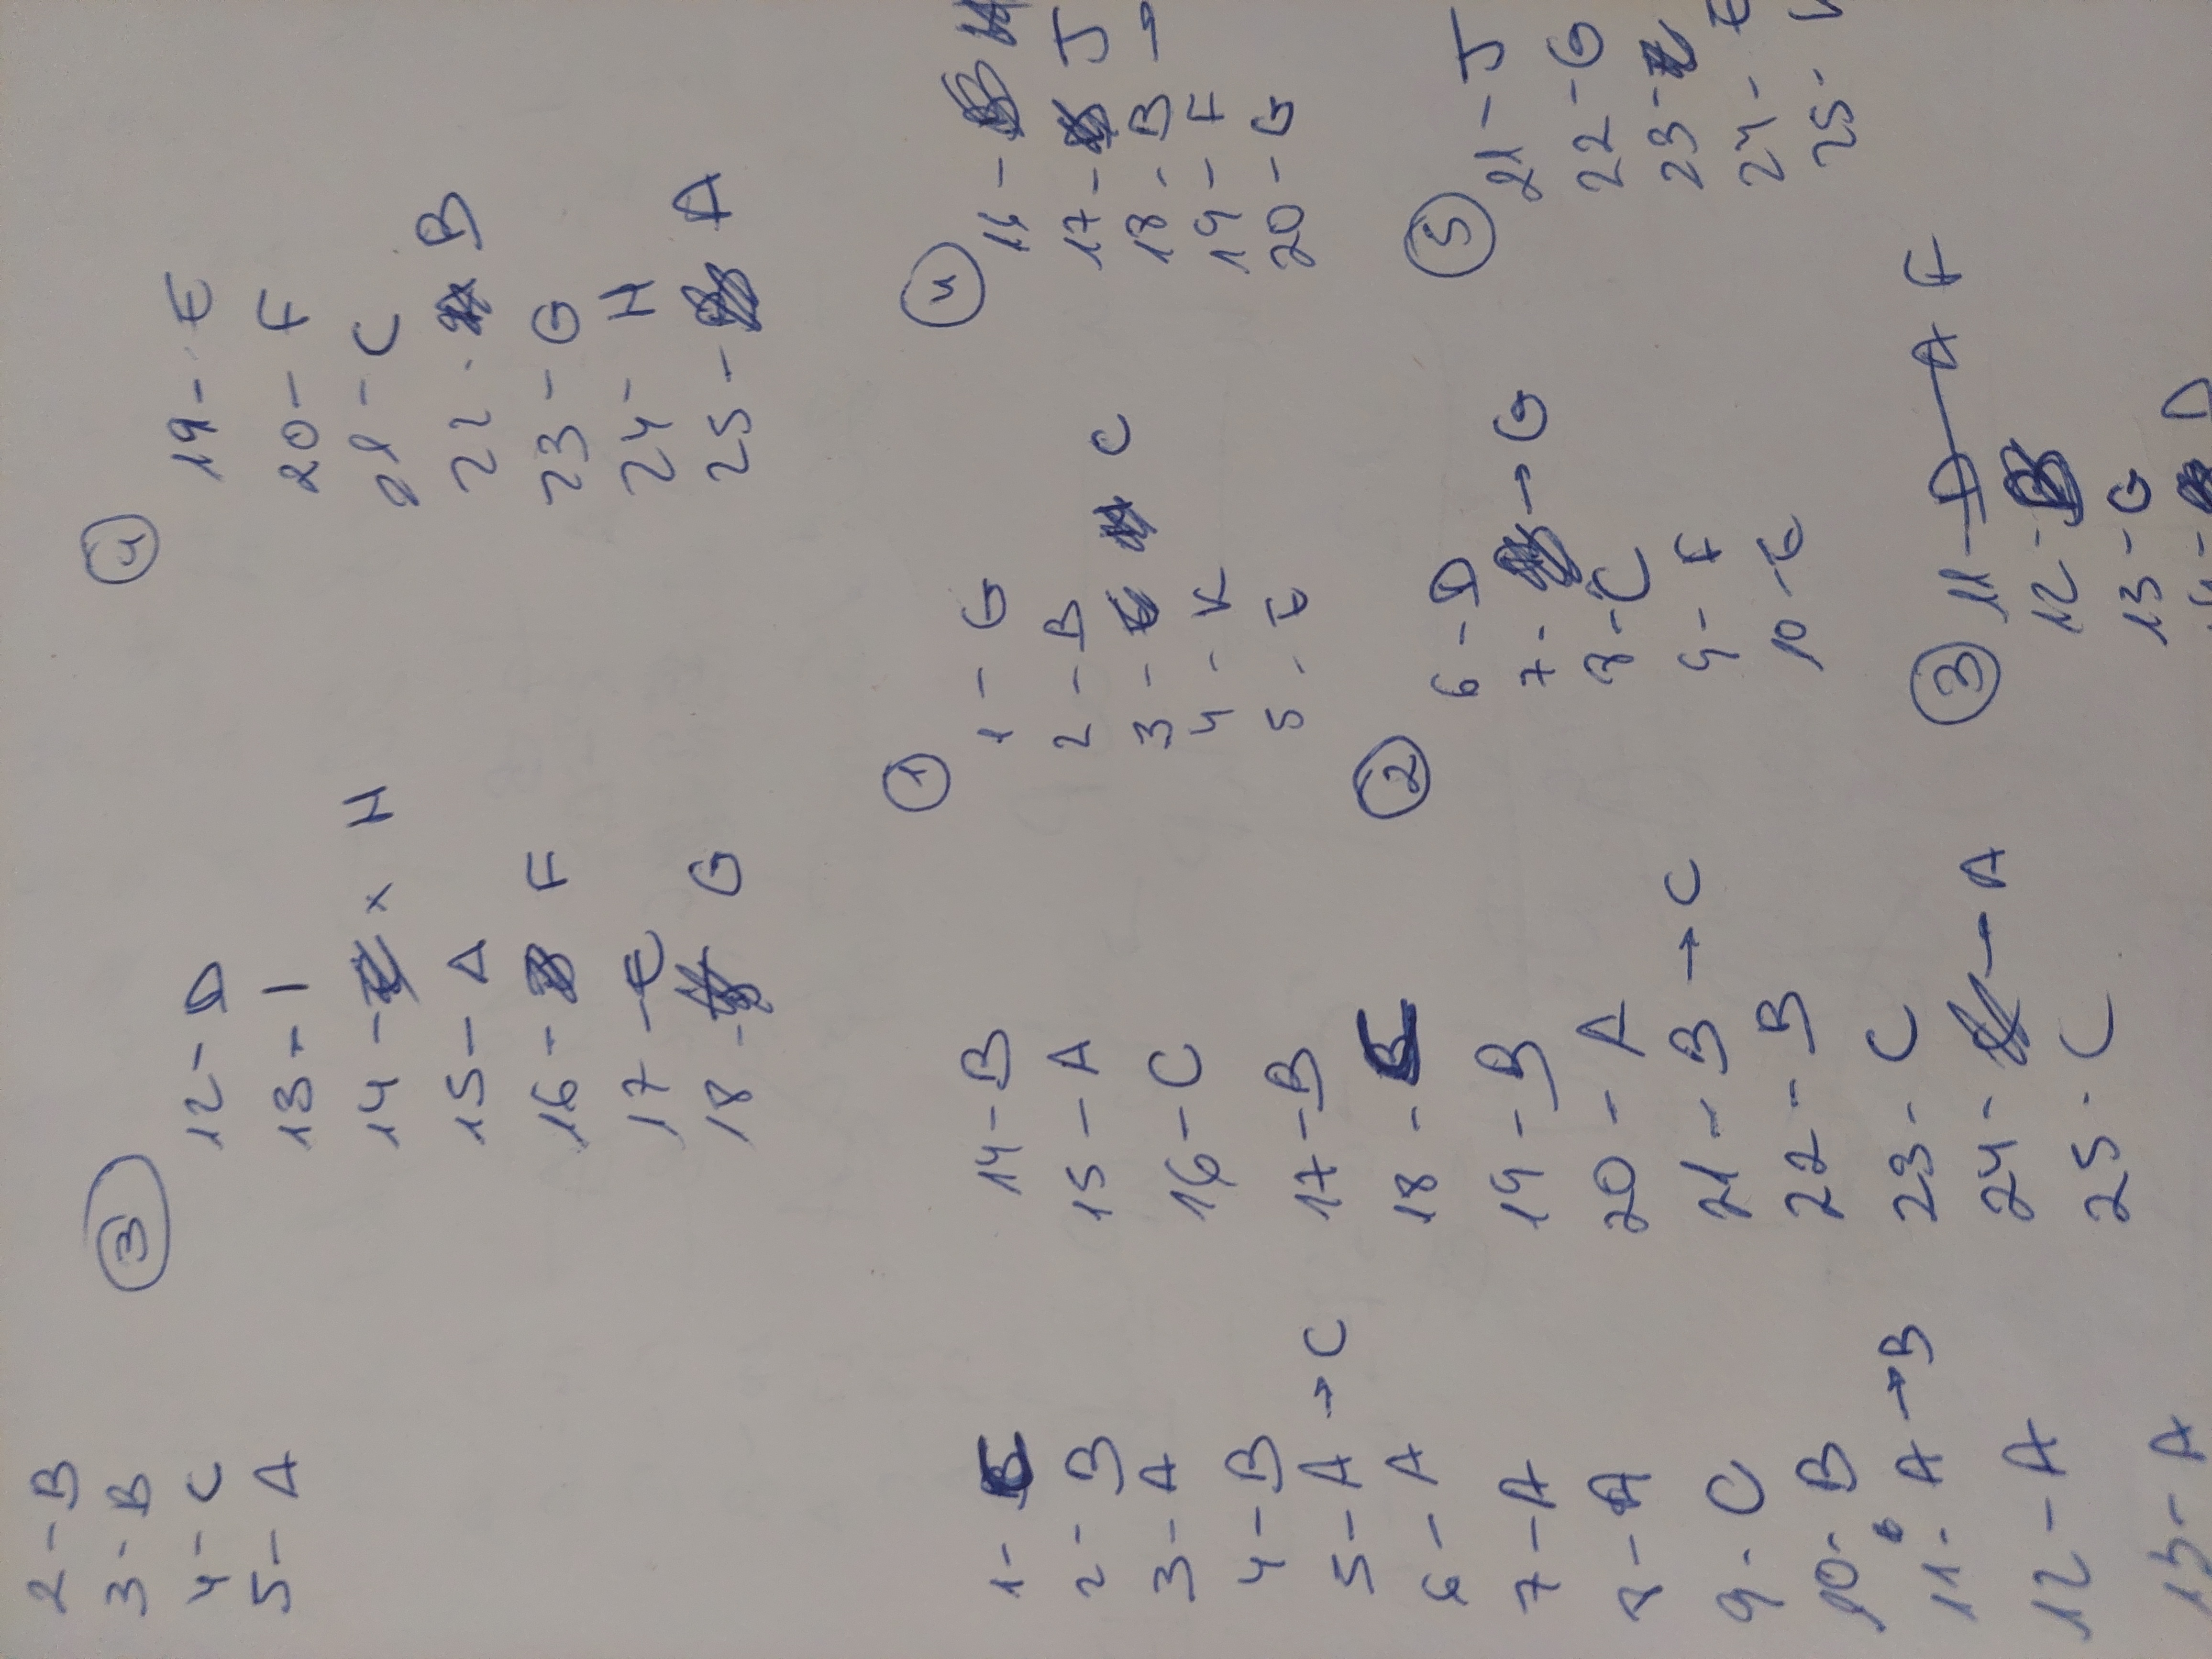 2 - B
3 - B
4 - C
5 - A
3
12 - D
13 - I
14 - x H
15 - A
16 - F
17 - E
18 - G
4
19 - E
20 - F
21 - C
22 - B
23 - G
24 - H
25 - A
1 - C
2 - B
3 - A
4 - B
5 - A → C
6 - A
7 - A
8 - A
9 - C
10 - B
11 - A → B
12 - A
13 - A
14 - B
15 - A
16 - C
17 - B
18 -
19 - B
20 - A
21 - B → C
22 - B
23 - C
24 - A
25 - C
1
1 - G
2 - B
3 - C
4 - K
5 - E
2
6 - D
7 - → G
8 - C
9 - F
10 - E
3
11 - D A F
12 - B
13 - G
D
4
16 -
17 - J
18 - B →
19 - F
20 - G
5
21 - J
22 - G
23 -
24 - E
25 -